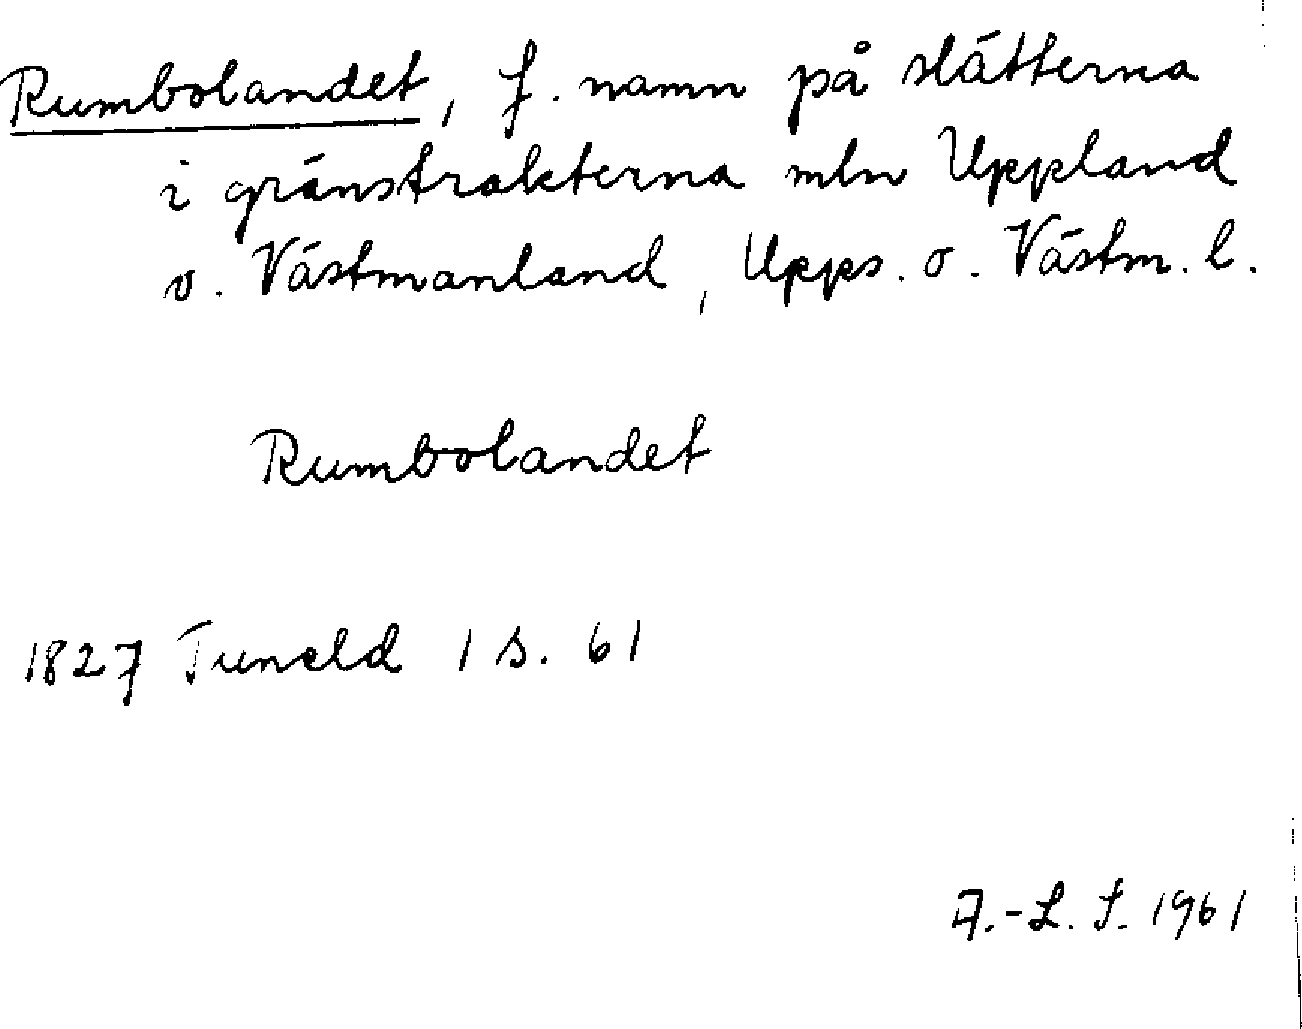 Rumbolandet, f. namn på slätterna
i gränstrakterna mln Uppland
o. Västmanland, Upps. o. Västm. l.
Rumbolandet
1827 Tuneld 1 s. 61
A.-L. S. 1961